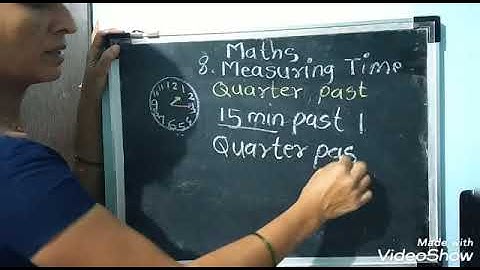 Maths
8. Measuring Time
Quarter past
15 min past 1
Quarter pas
Made with
VideoShow